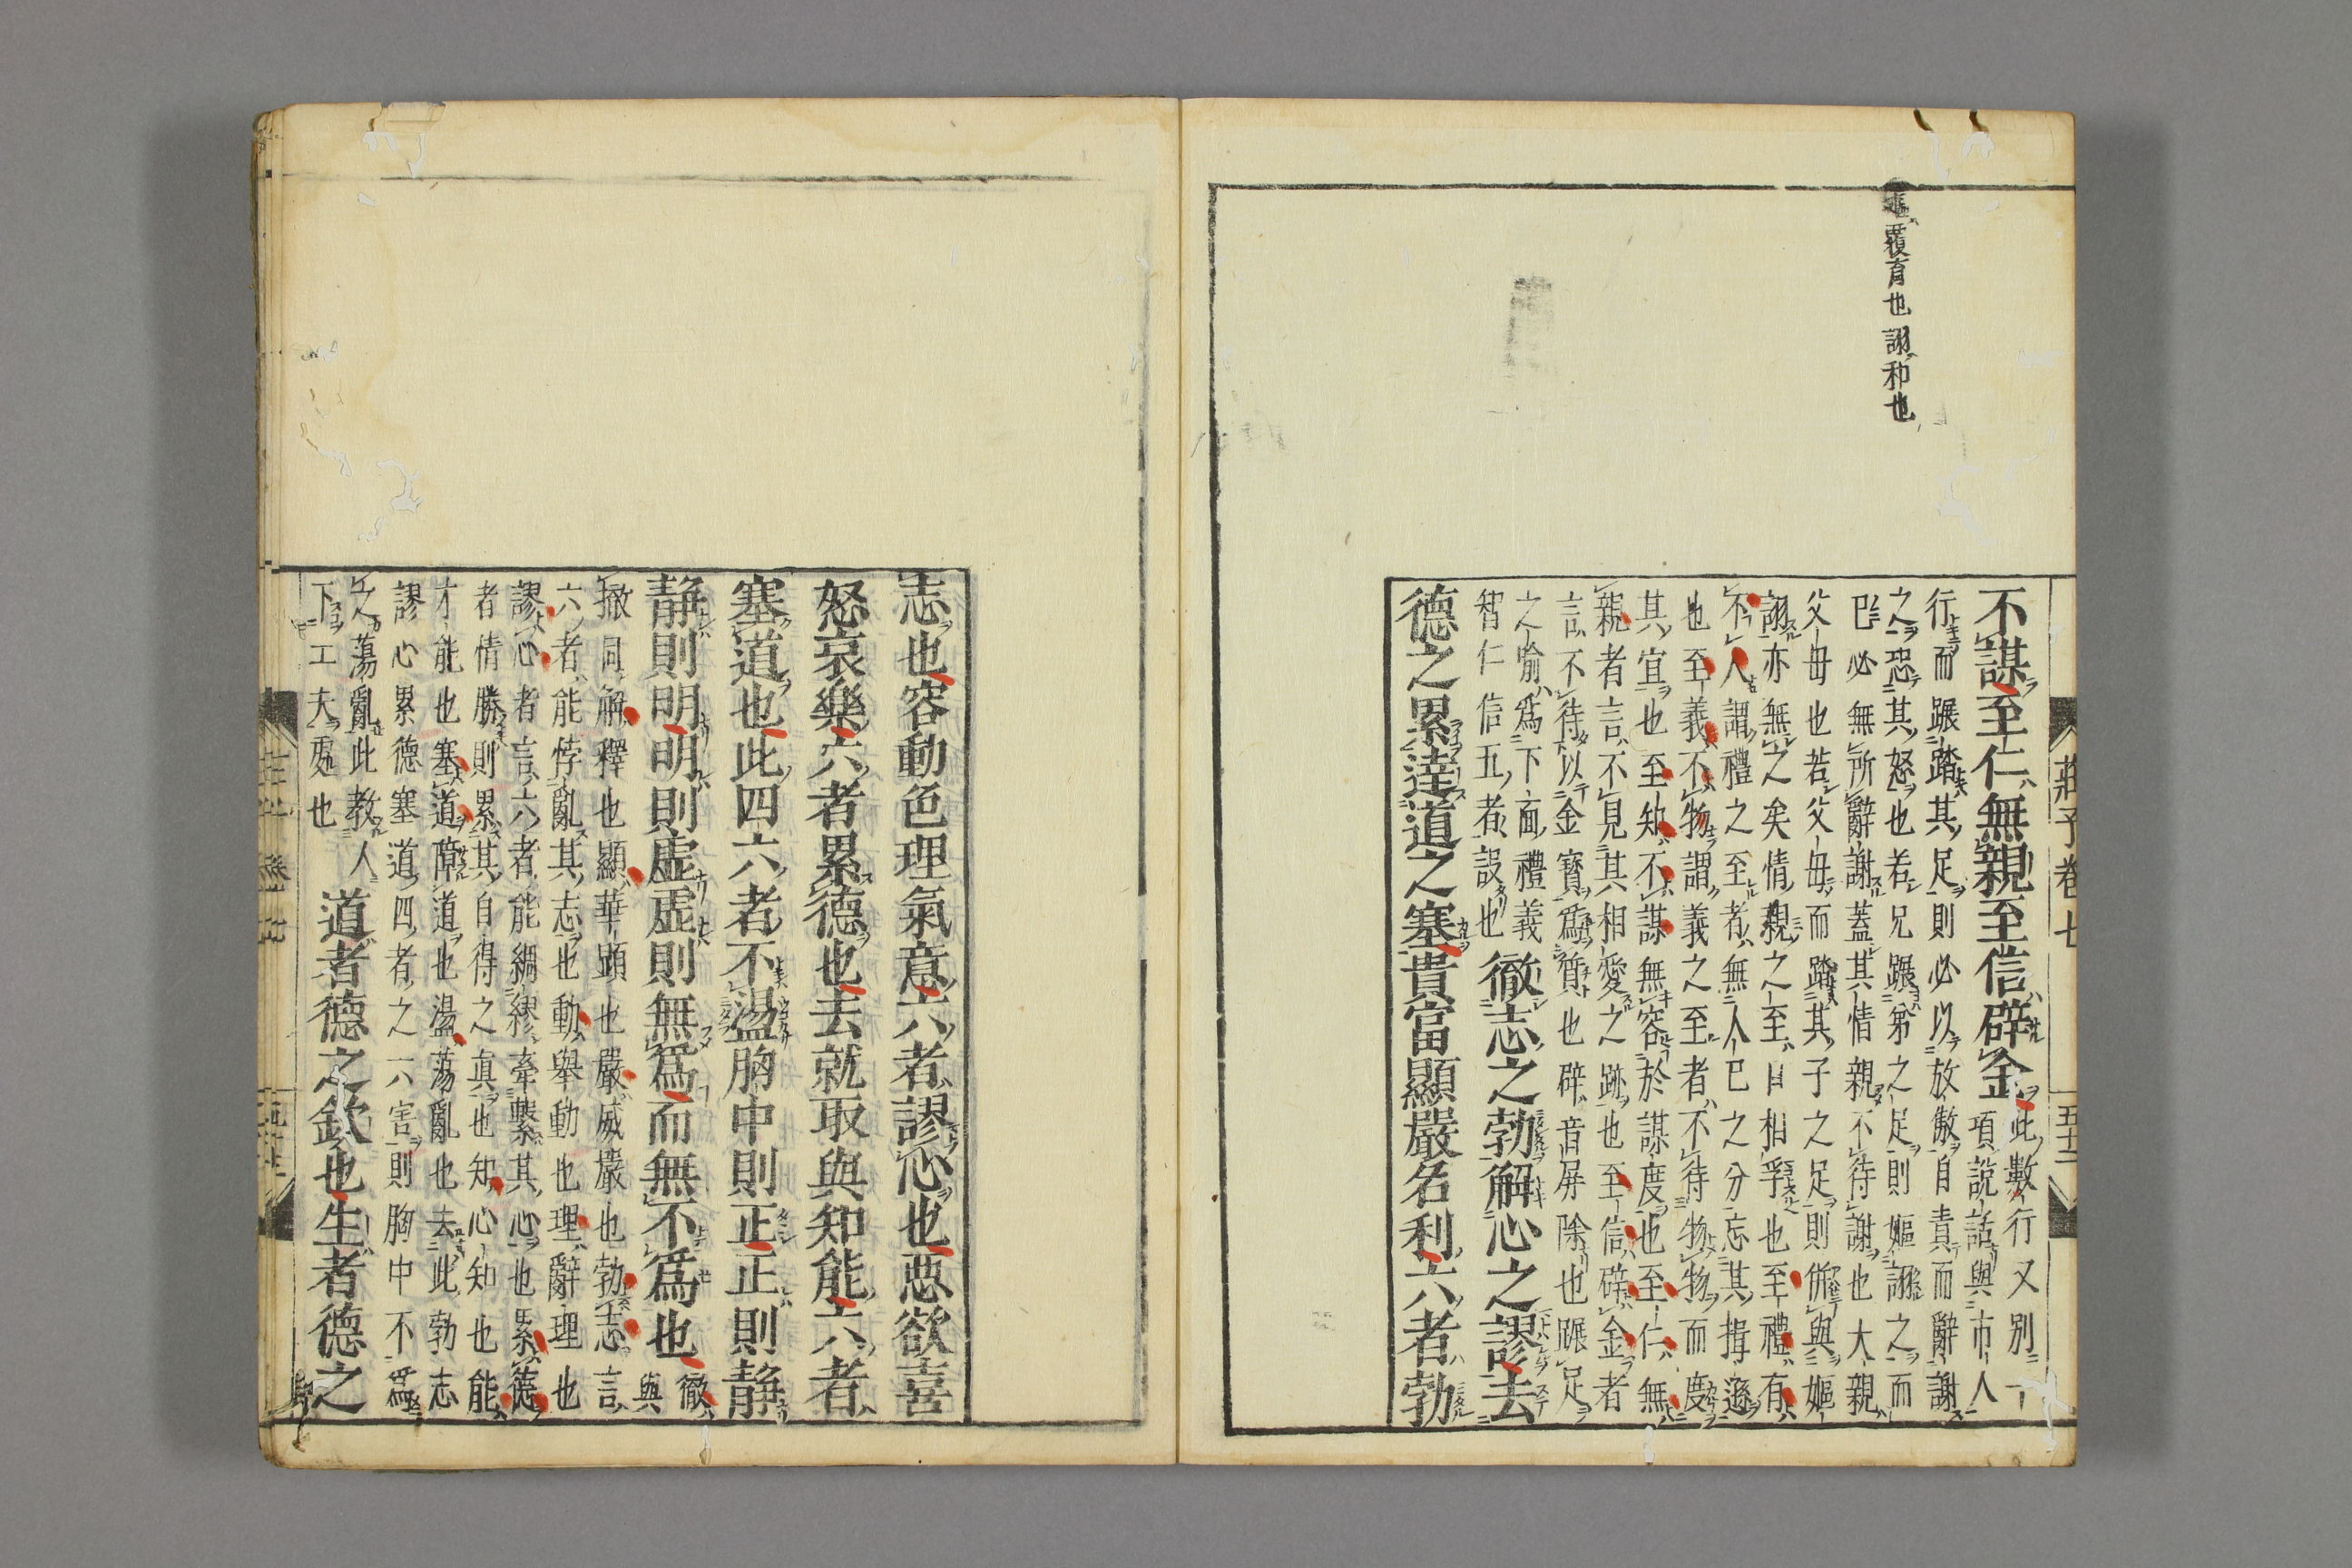 莊子卷七
五十二
覆育也詡和也
不謀至仁無親至信辟金此數行又別一
項說話與市人
行而蹍踏其足則必以放敖自責而辭謝
之恐其怒也若兄蹍弟之足則嫗詡之而
已必無所辭謝蓋其情親不待謝也大親
父母也若父母而踏其子之足則併與嫗
詡亦無之矣情親之至自相孚也至禮有
不人謂禮之至者無人己之分忘其揖遜
也至義不物謂義之至者不待物物而度
其宜也至知不謀無容於謀度也至仁無
親者言不見其相愛之跡也至信辟金者
言不待以金寶為質也辟音屏除也蹍足
之喻為下面禮義
智仁信五者設也徹志之勃解心之謬去
德之累達道之塞貴富顯嚴名利六者勃
志也容動色理氣意六者謬心也惡欲喜
怒哀樂六者累德也去就取與知能六者
塞道也此四六者不盪胸中則正正則静
静則明明則虛虛則無為而無不為也徹與
撤同解釋也顯華顯也嚴威嚴也勃志言
六者能悖亂其志也動舉動也理辭理也
謬心者言六者能綢繆牽繫其心也累德
者情勝則累其自得之真也知心知也能
才能也塞道障道也盪蕩亂也去此勃志
謬心累德塞道四者之六害則胸中不為
之蕩亂此教人
下工夫處也道者德之欽也生者德之